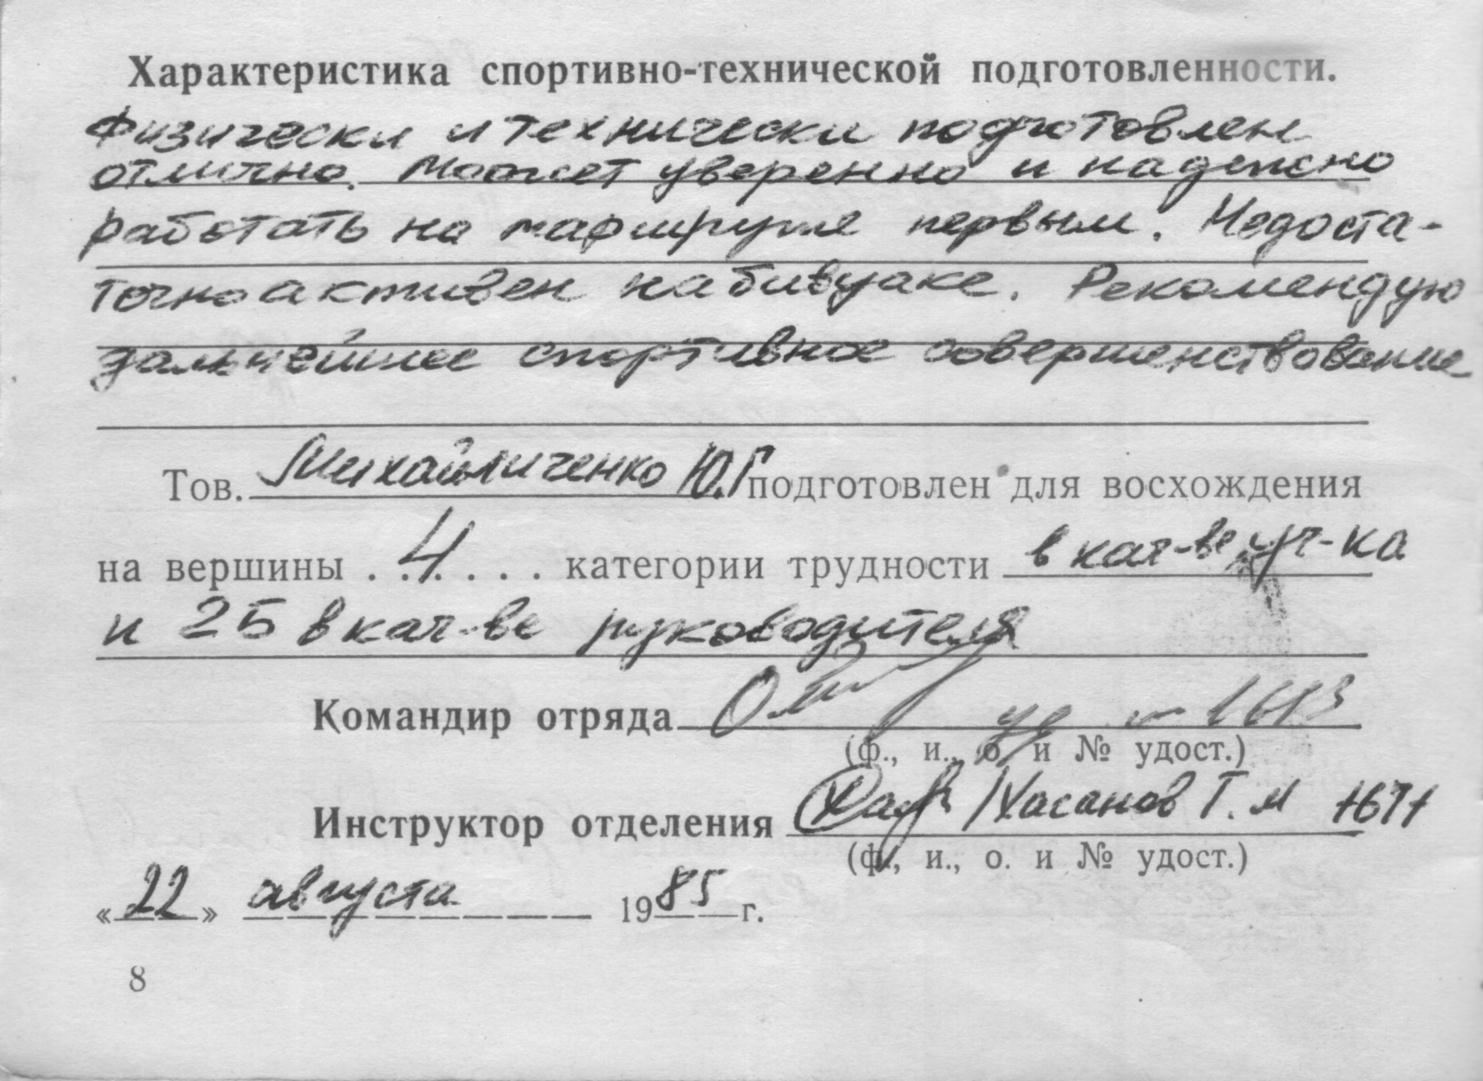 Характеристика спортивно-технической подготовленности.
Физически и технически подготовлен
отлично. Может уверенно и надежно
работать на маршруте первым. Недоста-
точно активен на бивуаке. Рекомендую
дальнейшее спортивное совершенствование
Тов. Михайличенко Ю.Г подготовлен для восхождения
на вершины . 4 . . . . категории трудности в кач-ве уч-ка
и 2Б в кач-ве руководителя
Командир отряда уд 1613
(ф., и., о. и № удост.)
Инструктор отделения Хасанов Т. М 1671
(ф., и., о. и № удост.)
«22» августа 1985 г.
8